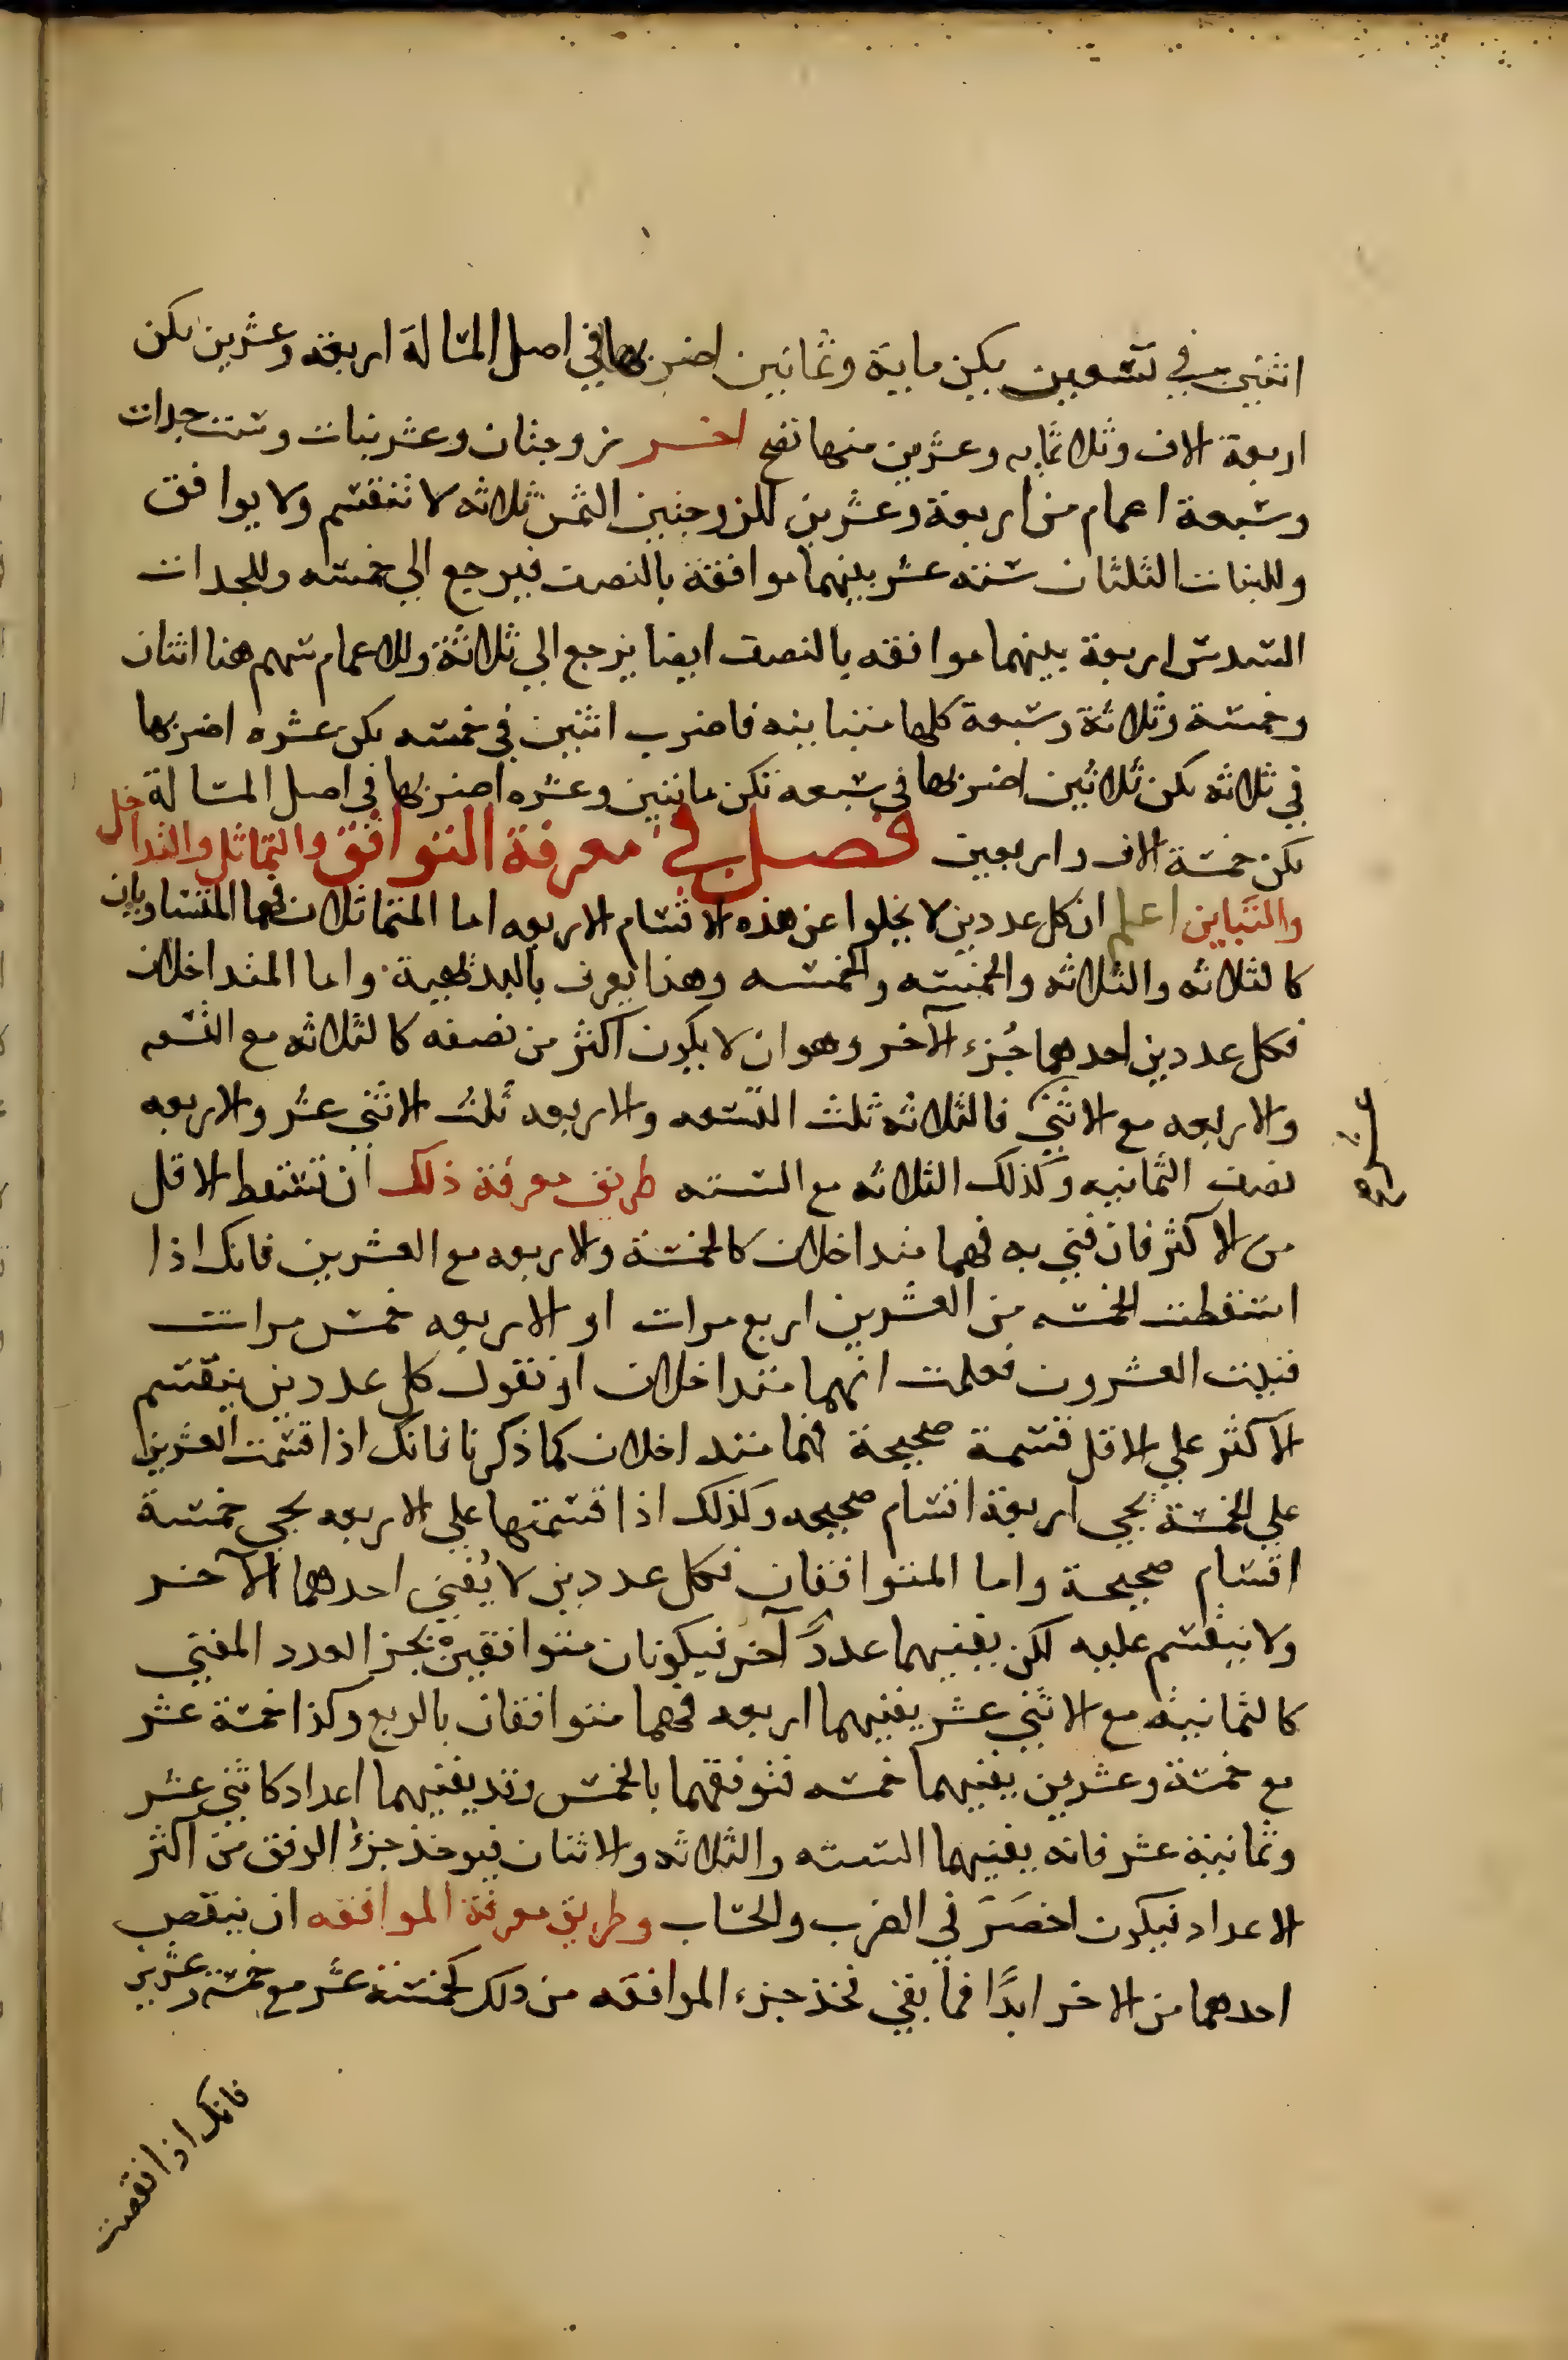 اثنين في تسعين يكن ماية وثمانين اضربها في اصل المسالة اربعة وعشرين يكن
اربعة الاف وثلاثمايه وعشرين منها تصح اخر زوجتان وعشر بنات وست جدات
وسبعة اعمام من اربعة وعشرين للزوجتين الثمن ثلاثه لا تنقسم ولا يوافق
وللبنات الثلثان سته عشر بينهما موافقة بالنصف فيرجع الي خمسه وللجدات
السدس اربعة بينهما موافقه بالنصف ايضا يرجع الي ثلاثة وللاعمام سهم هنا اثنان
وخمسة وثلاثة وسبعة كلها متباينه فاضرب اثنين في خمسه يكن عشره اضربها
في ثلاثه يكن ثلاثين اضربها في سبعه تكن مائتين وعشره اضربها في اصل المسالة
يكن خمسة الاف واربعين فصل في معرفة التوافق والتماثل والتداخل
والتباين اعلم ان كل عددين لا يخلوا عن هذه الاقسام الاربعه اما المتماثلان فهما المتساويان
كالثلاثه والثلاثه والخمسه والخمسه وهذا يعرف بالبديهية واما المتداخلان
فكل عددين احدهما جُزء الآخر وهو ان لا يكون اكثر من نصفه كالثلاثه مع التسعه
والاربعه مع الاثني فالثلاثه ثلث التسعه والاربعه ثلث الاثني عشر والاربعه
عشر صح
نصف الثمانيه وكذلك الثلاثه مع السته طريق معرفة ذلك ان تسقط الاقل
من الاكثر فان فني به فهما متداخلان كالخمسة والاربعه مع العشرين فانك اذا
اسقطت الخمسه من العشرين اربع مرات او الاربعه خمس مرات
فنيت العشرون فعلمت انهما متداخلان او نقول كل عددين ينقسم
الاكثر علي الاقل قسمة صحيحة فهما متداخلان كما ذكرنا فانك اذا قسمت العشرين
علي الخمسة يجي اربعة اقسام صحيحه وكذلك اذا قسمتها علي الاربعه يجي خمسة
اقسام صحيحة واما المتوافقان فكل عددين لا يُفني احدهما الآخر
ولا ينقسم عليه لكن يفنيهما عددٌ آخر فيكونان متوافقين بجز العدد المفني
كالثمانيه مع الاثني عشر يفنيهما اربعه فهما متوافقان بالربع وكذا خمسة عشر
مع خمسة وعشرين يفنيهما خمسه فتوفقهما بالخمس وقد يفنيهما اعداد كاثني عشر
وثمانية عشر فانه يفنيهما السته والثلاثه والاثنان فيوخذ جزء الوفق من اكثر
الاعداد فيكون اخصَرَ في الضرب والحساب وطريق معرفة الموافقه ان ينقص
احدهما من الاخر ابدًا فما بقي فخذ جزء الموافقه من ذلك كخمسة عشر مع خمسة وعشرين
فانك اذا نقصت